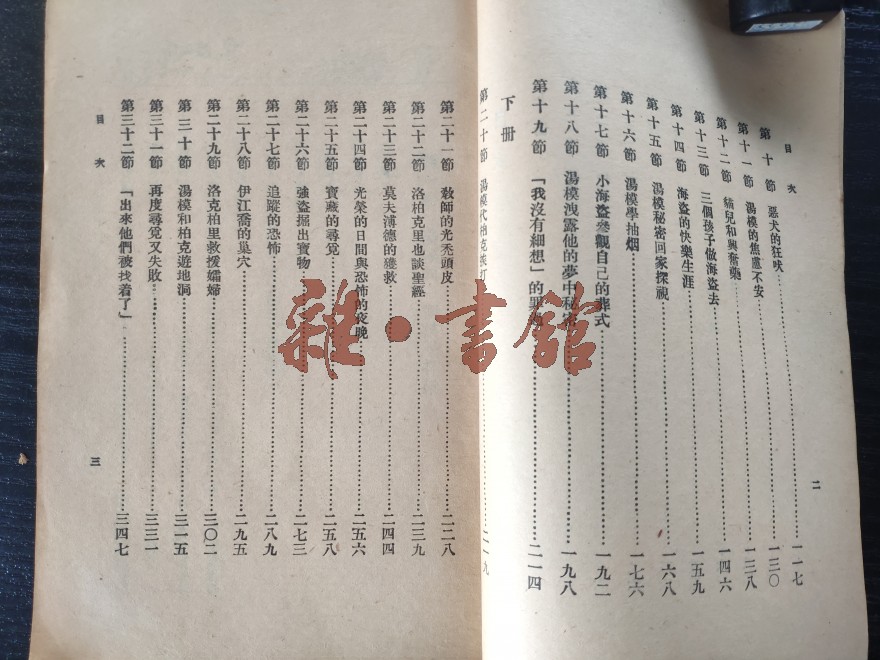 目次
第十節 惡犬的狂吠……一一七
第十一節 湯模的焦慮不安……一三〇
第十二節 貓兒和興奮藥……一三八
第十三節 三個孩子做海盜去……一四六
第十四節 海盜的快樂生涯……一五九
第十五節 湯模秘密回家探視……一六八
第十六節 湯模學抽烟……一七六
第十七節 小海盜參觀自己的葬式……一九二
第十八節 湯模洩露他的夢中秘……一九八
第十九節 「我沒有細想」的罪……二一四
二
下冊
第二十節 湯模代柏克挨打……二一九
第二十一節 教師的光禿頭皮……二二八
第二十二節 洛柏克里也談聖經……二三九
第二十三節 莫夫溥德的獲救……二四四
第二十四節 光榮的日間與恐怖的夜晚……二五六
第二十五節 寶藏的尋覓……二五八
第二十六節 強盜掘出寶物……二七三
第二十七節 追蹤的恐怖……二八九
第二十八節 伊江喬的巢穴……二九五
第二十九節 洛克柏里救援孀婦……三〇二
第三十節 湯模和柏克遊地洞……三一五
第三十一節 再度尋覓又失敗……三三一
第三十二節 「出來他們被找着了」……三四七
目次
三
雜·書館